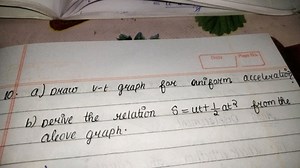 10. a) Draw v-t graph for uniform acceleration
b) Derive the relation S = ut + ½ at² from the
above graph.